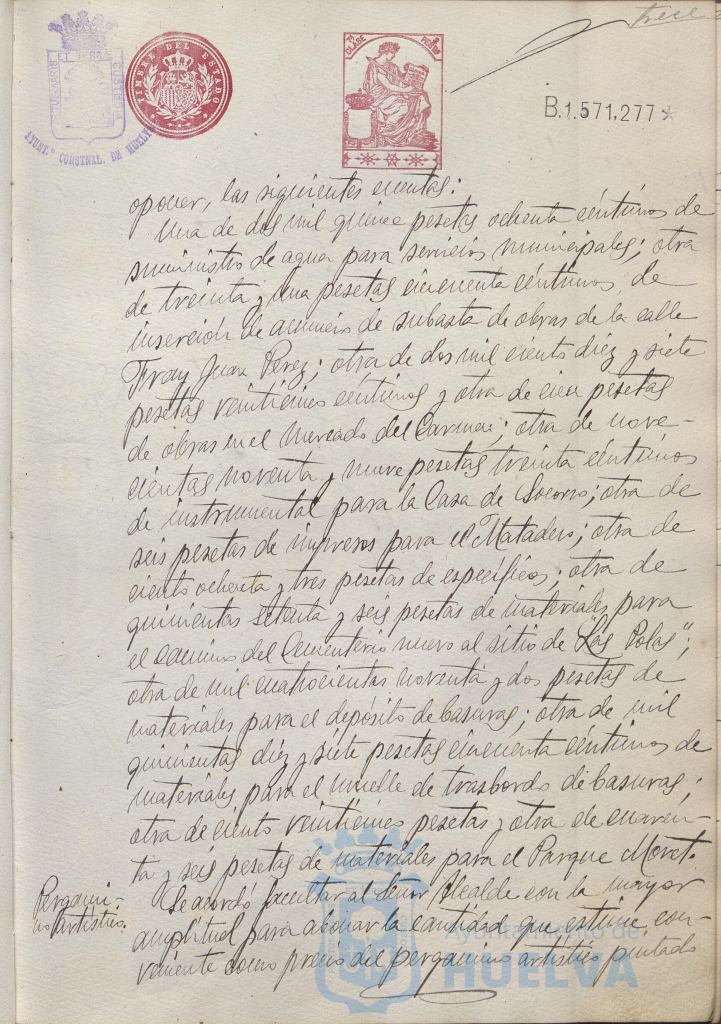 trece
AYUNT.º CONSTNAL. DE HUELVA
TIMBRE DEL ESTADO
7ª CLASE
PESETAS
B.1.571,277*
oponer, las siguientes cuentas:
Una de dos mil quince pesetas ochenta céntimos de
suministro de agua para servicios municipales; otra
de treinta y una pesetas cincuenta céntimos, de
inserción de anuncio de subasta de obras de la calle
Fray Juan Perez; otra de dos mil ciento diez y siete
pesetas veinticinco céntimos y otra de cien pesetas
de obras en el Mercado del Carmen; otra de nove-
cientas noventa y nueve pesetas treinta céntimos
de instrumental para la Casa de Socorro; otra de
seis pesetas de impresos para el Matadero; otra de
ciento ochenta y tres pesetas de específicos; otra de
quinientas setenta y seis pesetas de materiales para
el camino del Cementerio nuevo al sitio de "Las Polas";
otra de mil cuatrocientas noventa y dos pesetas de
materiales para el depósito de basuras; otra de mil
quinientas diez y siete pesetas cincuenta céntimos de
materiales para el muelle de trasbordo de basuras;
otra de ciento veinticinco pesetas y otra de cuaren-
ta y seis pesetas de materiales para el Parque Moret.
Pergami-
no artístico.
Se acordó facultar al Señor Alcalde con la mayor
amplitud para abonar la cantidad que estime con-
veniente como precio del pergamino artístico pintado
Ayuntamiento de
HUELVA